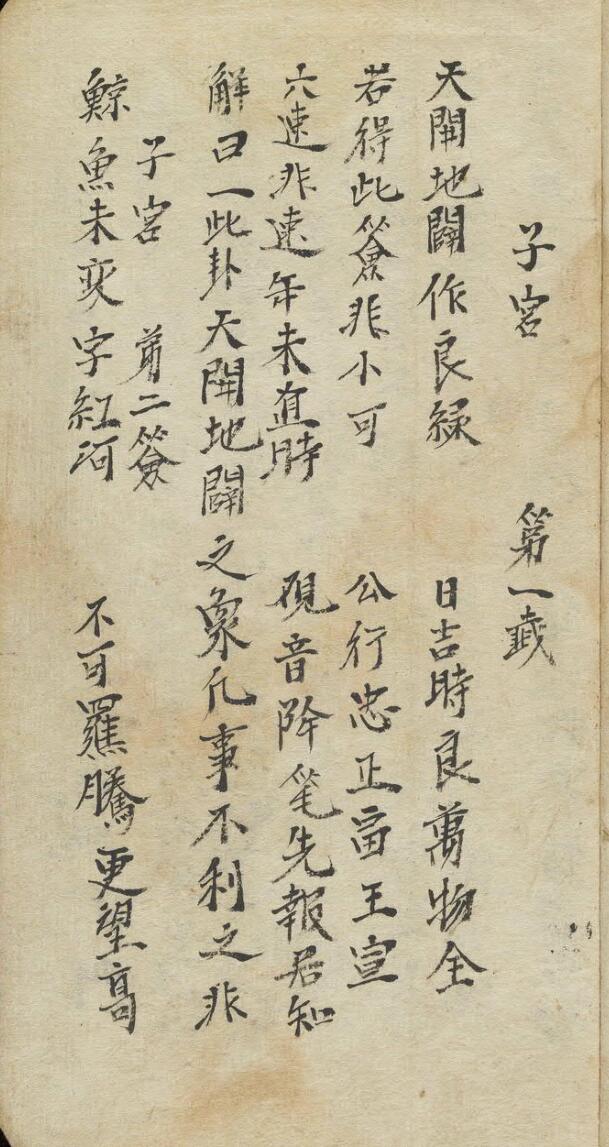 子宮 第一籤
天開地闢作良緣 日吉時良萬物全
若得此簽非小可 公行忠正畐王宣
六速非速年未直時 硯音降笔先報君知
解曰一此卦天開地闢之象凡事不利之非
子宮 苐二簽
鯨魚未变字紅河 不可羅騰更望高